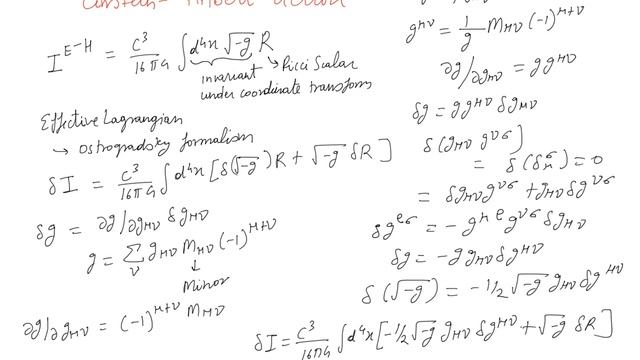 Einstein-Hilbert action
I^{E-H} = c³/16πG ∫ d⁴x √-g R
invariant → Ricci Scalar
under coordinate transform
Effective Lagrangian
→ Ostrogradsky formalism
δI = c³/16πG ∫ d⁴x [δ(√-g) R + √-g δR]
δg = ∂g/∂g_{μν} δg_{μν}
g = Σ_ν g_{μν} M_{μν} (-1)^{μ+ν}
↓
Minor
∂g/∂g_{μν} = (-1)^{μ+ν} M_{μν}
g^{μν} = 1/g M_{μν} (-1)^{μ+ν}
∂g/∂g_{μν} = g g^{μν}
δg = g g^{μν} δg_{μν}
δ(g_{μν} g^{νσ})
= δ(δ_μ^σ) = 0
= δg_{μν} g^{νσ} + g_{μν} δg^{νσ}
δg^{ρσ} = -g^{μρ} g^{νσ} δg_{μν}
δg = -g g_{μν} δg^{μν}
δ(√-g) = -1/2 √-g g_{μν} δg^{μν}
δI = c³/16πG ∫ d⁴x [-1/2 √-g g_{μν} δg^{μν} + √-g δR]